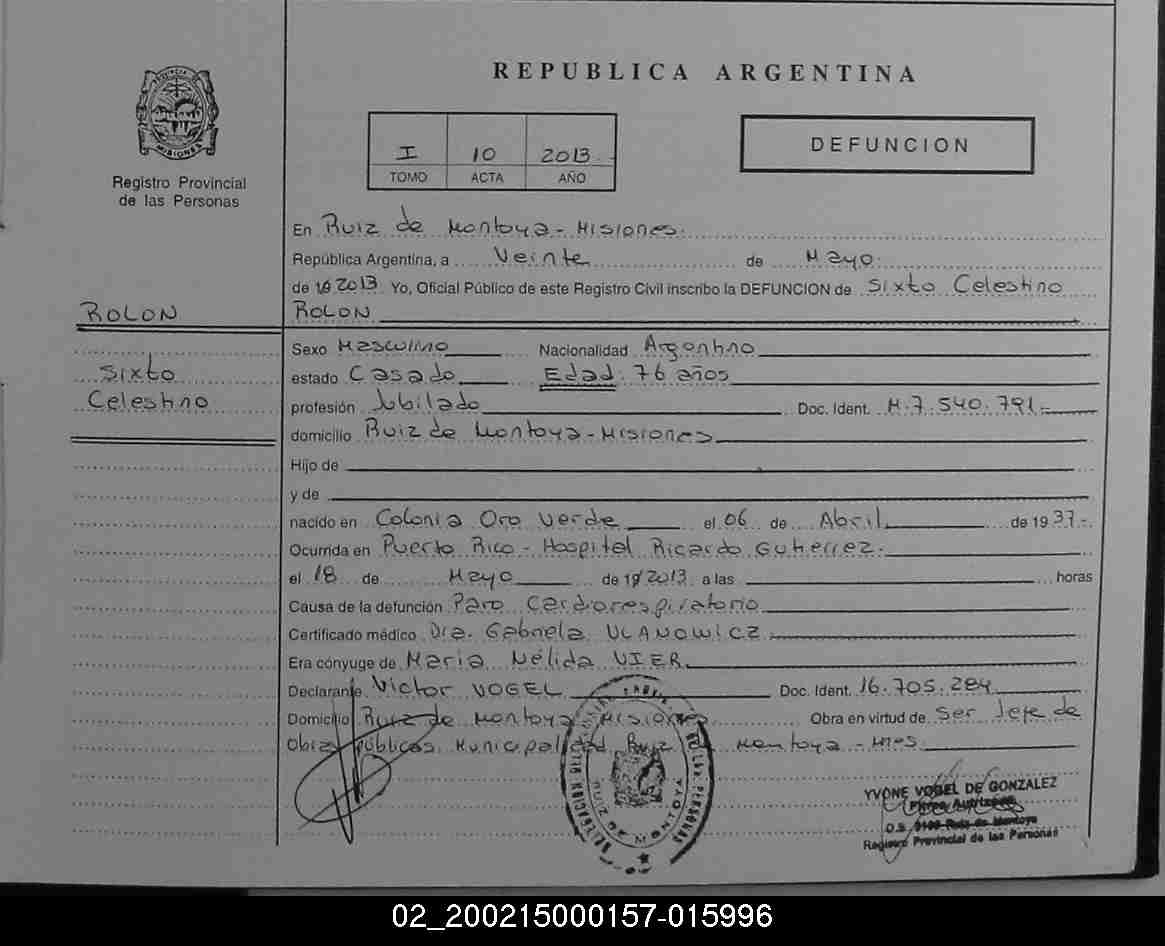 REPUBLICA ARGENTINA
PROVINCIA DE
MISIONES
Registro Provincial
de las Personas
I 10 2013
TOMO ACTA AÑO
DEFUNCION
En Ruiz de Montoya - Misiones.
República Argentina, a Veinte de Mayo.
de 19 2013 Yo, Oficial Público de este Registro Civil inscribo la DEFUNCION de Sixto Celestino
ROLON
ROLON
Sixto
Celestino
Sexo Masculino Nacionalidad Argentino
estado Casado Edad: 76 años
profesión Jubilado Doc. Ident. M.7.540.791.-
domicilio Ruiz de Montoya - Misiones
Hijo de
y de
nacido en Colonia Oro Verde el 06 de Abril de 1937.-
Ocurrida en Puerto Rico - Hospital Ricardo Gutierrez.
el 18 de Mayo de 19 2013 a las horas
Causa de la defunción Paro Cardiorespiratorio
Certificado médico Dra. Gabriela ULANOWICZ
Era cónyuge de Maria Nélida VIER.
Declarante Victor VOGEL Doc. Ident. 16.705.284
Domicilio Ruiz de Montoya - Misiones Obra en virtud de Ser Jefe de
Obras públicas Municipalidad Ruiz de Montoya - Mnes.
RUIZ DE MONTOYA
YVONE VOGEL DE GONZALEZ
Firma Autorizada
O.S. Ruiz de Montoya
Registro Provincial de las Personas
02_200215000157-015996